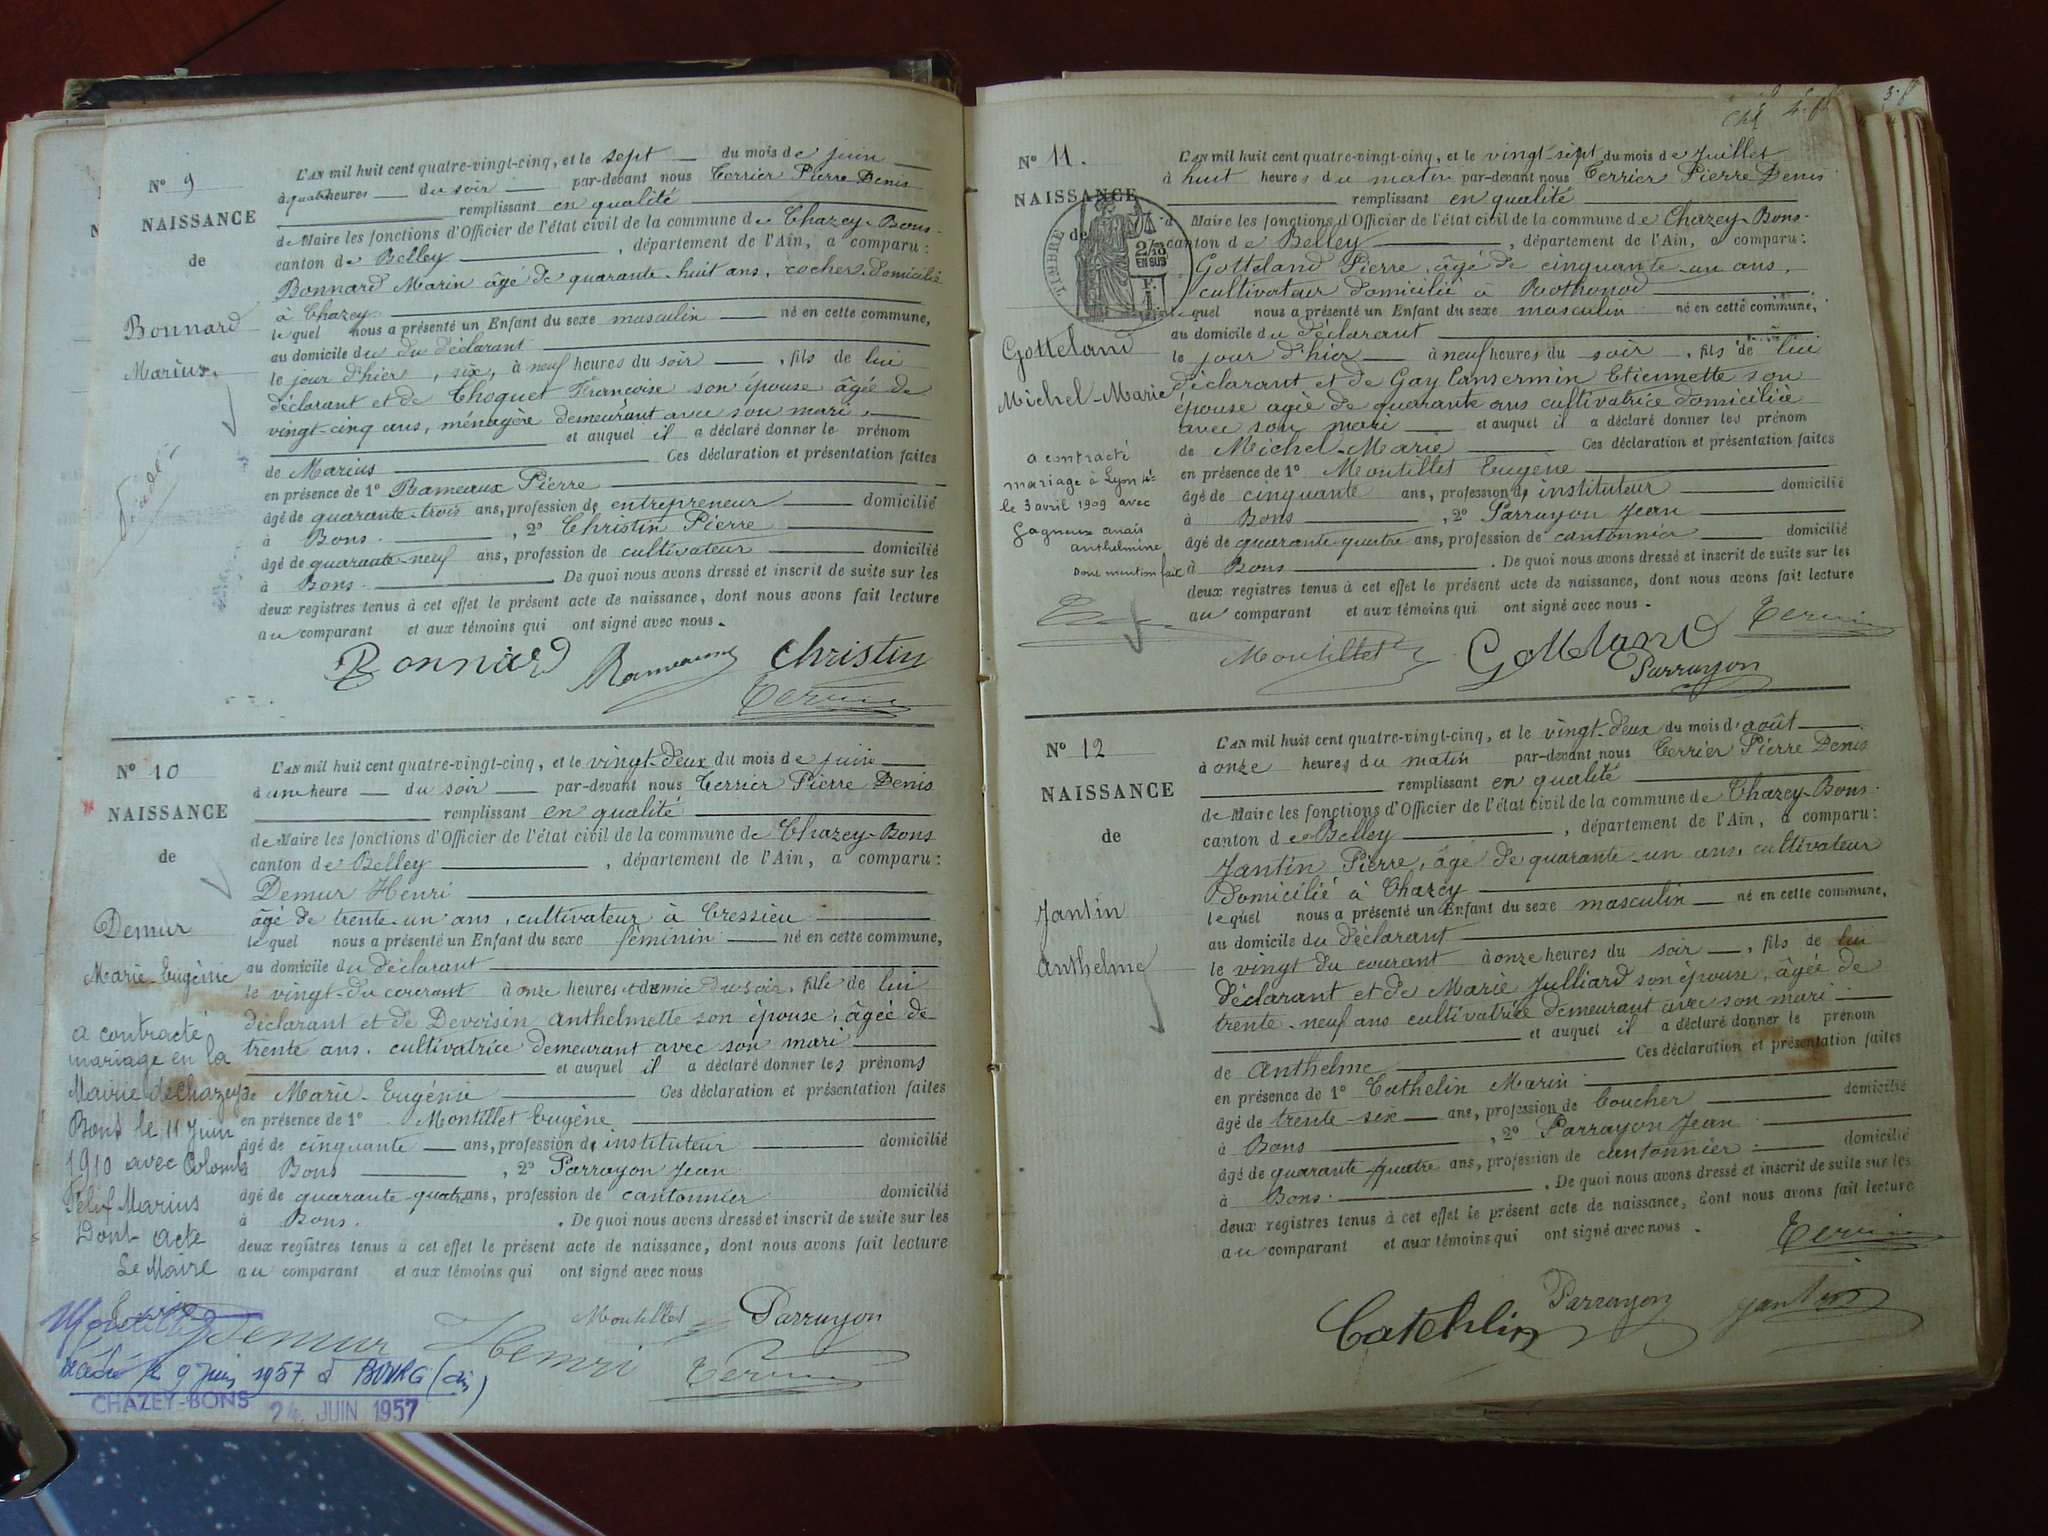 N° 9
NAISSANCE
de
Bonnard
Marius.
L'AN mil huit cent quatre-vingt-cinq, et le sept du mois de juin
à quatre heures du soir par-devant nous Terrier Pierre Denis
remplissant en qualité
de Maire les fonctions d'Officier de l'état civil de la commune de Chazey-Bons.
canton de Belley, département de l'Ain, a comparu:
Bonnard Marin âgé de quarante-huit ans, cocher, domicilié
à Chazey
le quel nous a présenté un Enfant du sexe masculin né en cette commune,
au domicile du du déclarant
le jour d'hier, six, à neuf heures du soir, fils de lui
déclarant et de Choquet Françoise son épouse âgée de
vingt-cinq ans, ménagère demeurant avec son mari,
et auquel il a déclaré donner le prénom
de Marius Ces déclaration et présentation faites
en présence de 1° Rameaux Pierre
âgé de quarante-trois ans, profession de entrepreneur domicilié
à Bons, 2° Christin Pierre
âgé de quarante-neuf ans, profession de cultivateur domicilié
à Bons. De quoi nous avons dressé et inscrit de suite sur les
deux registres tenus à cet effet le présent acte de naissance, dont nous avons fait lecture
au comparant et aux témoins qui ont signé avec nous.
Bonnard Rameaux Christin
Terrier
N° 10
NAISSANCE
de
Demur
Marie-Eugénie
a contracté
mariage en la
Mairie de Chazey
Bons le 11 Juin
1910 avec Colomb
Félix Marius
Dont acte
Le Maire
L'AN mil huit cent quatre-vingt-cinq, et le vingt-deux du mois de juin
à une heure du soir par-devant nous Terrier Pierre Denis
remplissant en qualité
de Maire les fonctions d'Officier de l'état civil de la commune de Chazey-Bons
canton de Belley, département de l'Ain, a comparu:
Demur Henri
âgé de trente-un ans, cultivateur à Cressieu
le quel nous a présenté un Enfant du sexe féminin né en cette commune,
au domicile du déclarant
le vingt-du courant à onze heures et demie du soir, fille de lui
déclarant et de Devoisin Anthelmette son épouse, âgée de
trente ans, cultivatrice demeurant avec son mari
et auquel il a déclaré donner les prénoms
de Marie-Eugénie Ces déclaration et présentation faites
en présence de 1° Montillet Eugène
âgé de cinquante ans, profession d'instituteur domicilié
à Bons, 2° Parrayon Jean
âgé de quarante-quatre ans, profession de cantonnier domicilié
à Bons. De quoi nous avons dressé et inscrit de suite sur les
deux registres tenus à cet effet le présent acte de naissance, dont nous avons fait lecture
au comparant et aux témoins qui ont signé avec nous
Montillet Parrayon
Demur Henri Terrier
le 9 juin 1957 à BOURG (Ain)
CHAZEY-BONS 24 JUIN 1957
N° 11.
NAISSANCE
de
TIMBRE
2/10
EN SUS
Gotteland
Michel-Marie
a contracté
mariage à Lyon
le 3 avril 1909 avec
Gagneux Anaïs
anthelmine
Dont mention fait
L'AN mil huit cent quatre-vingt-cinq, et le vingt-sept du mois de Juillet
à huit heures du matin par-devant nous Terrier Pierre Denis
remplissant en qualité
de Maire les fonctions d'Officier de l'état civil de la commune de Chazey-Bons-
canton de Belley, département de l'Ain, a comparu:
Gotteland Pierre, âgé de cinquante-un ans,
cultivateur domicilié à Rothonod
le quel nous a présenté un Enfant du sexe masculin né en cette commune,
au domicile du déclarant
le jour d'hier à neuf heures du soir, fils de lui
déclarant et de Gay Cansermin Etiennette son
épouse agée de quarante ans cultivatrice domiciliée
avec son mari et auquel il a déclaré donner les prénom
de Michel-Marie Ces déclaration et présentation faites
en présence de 1° Montillet Eugène
âgé de cinquante ans, profession d'instituteur domicilié
à Bons, 2° Parrayon Jean
âgé de quarante-quatre ans, profession de cantonnier domicilié
à Bons. De quoi nous avons dressé et inscrit de suite sur les
deux registres tenus à cet effet le présent acte de naissance, dont nous avons fait lecture
au comparant et aux témoins qui ont signé avec nous.
Terrier
Montillet Gotteland
Parrayon
N° 12
NAISSANCE
de
Jantin
Anthelme
L'AN mil huit cent quatre-vingt-cinq, et le vingt-deux du mois d'août
à onze heures du matin par-devant nous Terrier Pierre Denis
remplissant en qualité
de Maire les fonctions d'Officier de l'état civil de la commune de Chazey-Bons.
canton de Belley, département de l'Ain, a comparu:
Jantin Pierre, âgé de quarante-un ans, cultivateur
domicilié à Chazey
le quel nous a présenté un Enfant du sexe masculin né en cette commune,
au domicile du déclarant
le vingt du courant à onze heures du soir, fils de lui
déclarant et de Marie Julliard son épouse, âgée de
trente-neuf ans cultivatrice demeurant avec son mari
et auquel il a déclaré donner le prénom
de Anthelme Ces déclaration et présentation faites
en présence de 1° Cathelin Marin
âgé de trente-six ans, profession de boucher domicilié
à Bons, 2° Parrayon Jean
âgé de quarante-quatre ans, profession de cantonnier domicilié
à Bons. De quoi nous avons dressé et inscrit de suite sur les
deux registres tenus à cet effet le présent acte de naissance, dont nous avons fait lecture
au comparant et aux témoins qui ont signé avec nous.
Terrier
Cathelin Parrayon Jantin